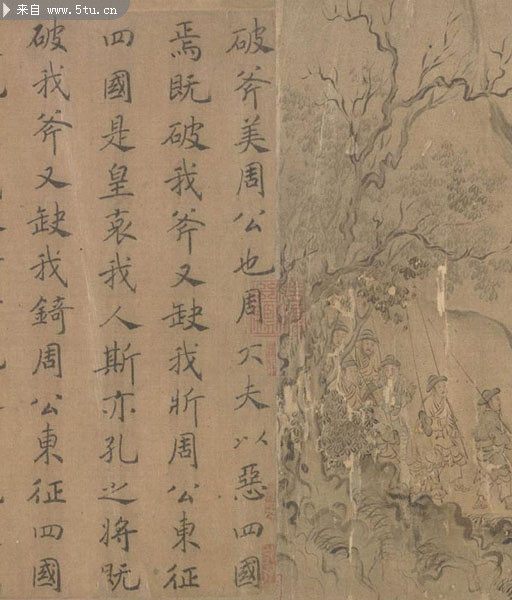 来自 www.5tu.cn
破斧美周公也周大夫以惡四國
焉既破我斧又缺我斨周公東征
四國是皇哀我人斯亦孔之將既
破我斧又缺我錡周公東征四國